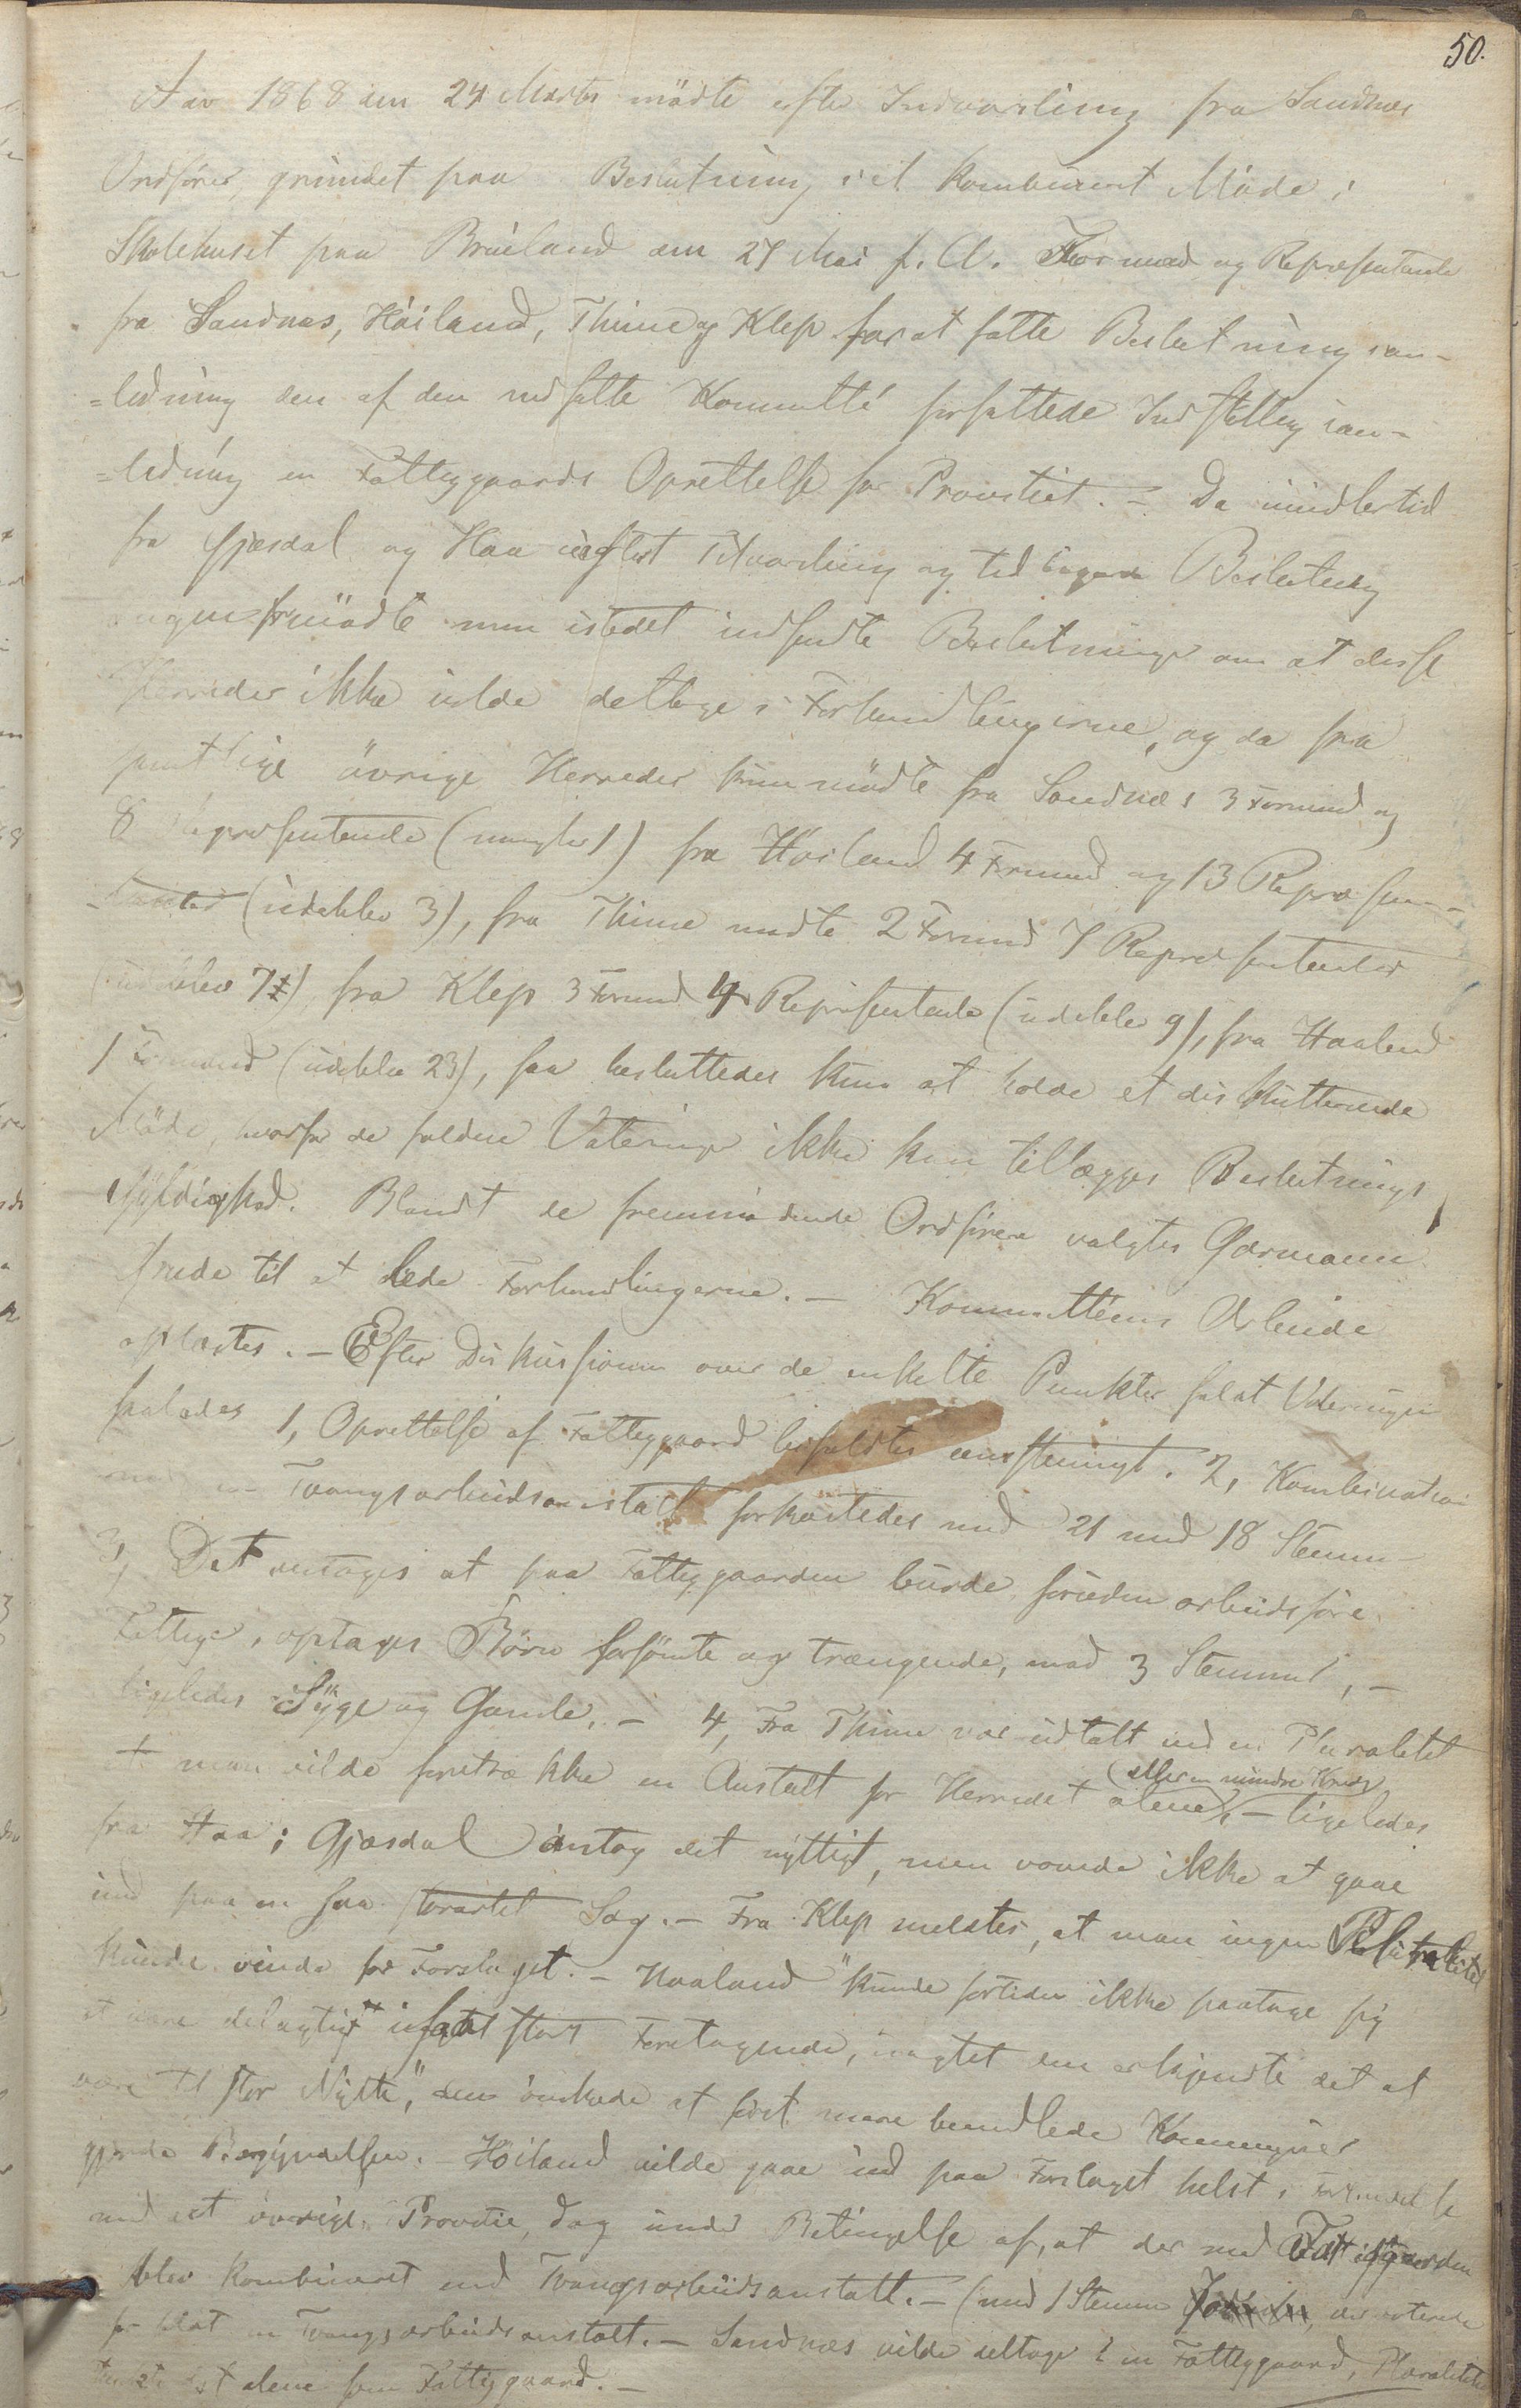 50.
Aar 1868 den 24 Marts mödte efter Indvarsling fra Sandnes
Ordförer, grundet paa Beslutning i et kombineret Möde i
Skolehuset paa Brueland den 27 Mai f. A. Formænd og Repræsentanter
fra Sandnæs, Höiland, Thime og Klep for at fatte Beslutning i an-
=ledning den af den nedsatte Kommitté forfattede Indstilling i an-
=ledning en Fattiggaards Oprettelse for Provstiet. - Da imidlertid
fra Gjæsdal og Haa uagtet Tilvarsling og tidligere Beslutning
ingen fremmödte men istedet indsendte Beslutninger om at disse
Herreder ikke vilde deltage i Forhandlingerne, og da fra
samtlige övrige Herreder kun mödte fra Sandnæs 3 Formænd og
8 Repræsentanter (mangler 1) fra Höiland 4 Formænd og 13 Repræsen-
tanter (udeblev 3), fra Thime mödte 2 Formænd 7 Repræsentanter
(udeblev 7) fra Klep 3 Formænd 4 Repræsentanter (udeblev 9), fra Haaland
1 Formand (udeblev 23), saa besluttedes kun at holde et diskutterende
Möde, hvorfor de faldne Voteringer ikke kan tillægges Beslutnings
Gyldighed. Blandt de fremmödende Ordförere valgtes Gærmann
til at lede Forhandlingerne. - Kommitteens Arbeide
oplæstes. - Efter Diskussionen over de enkelte Punkter falat Voteringen
saaledes 1, Oprettelse af Fattiggaard bifaldtes eenstemmigt. 2, Kombination
med en Tvangsarbeidsanstalt forkastedes med 21 mod 18 Stemmer
3, Det antages at paa Fattiggaarden burde, foruden arbeidsföre
Fattige, optages Börn forsömte og trængende, mod 3 Stemmer, -
ligeledes Syge og Gamle. - 4, Fra Thime var udtalt ved en Pluralitet
at man vilde foretrække en Anstalt for Herredet alene, (eller en mindre Kreds) - ligeledes
fra Haa; Gjæsdal antog det nyttigt, men vovede ikke at gaae
ind paa en saa storartet Sag. - Fra Klep meldtes, at man ingen Pluralitet
kunde vinde for Forslaget. - Haaland "kunde fortiden ikke paatage sig
at være delagtig i saa stort Foretagende, uagtet den erkjendte det at
være til stor Nytte", den önskede at först mere bemidlede Kommuner
gjorde Begyndelsen. - Höiland vilde gaae ind paa Forslaget helst i Forbindelse
med det övrige Provstie, dog under Betingelse af, at der med Fattiggaarden
blev kombineret en Tvangsarbeidsanstalt. - (mod 1 Stemme der voterede
for blot en Tvangsarbeidsanstalt. - Sandnæs vilde deltage i en Fattiggaard, Pluraliteten
det alene som Fattiggaard. -